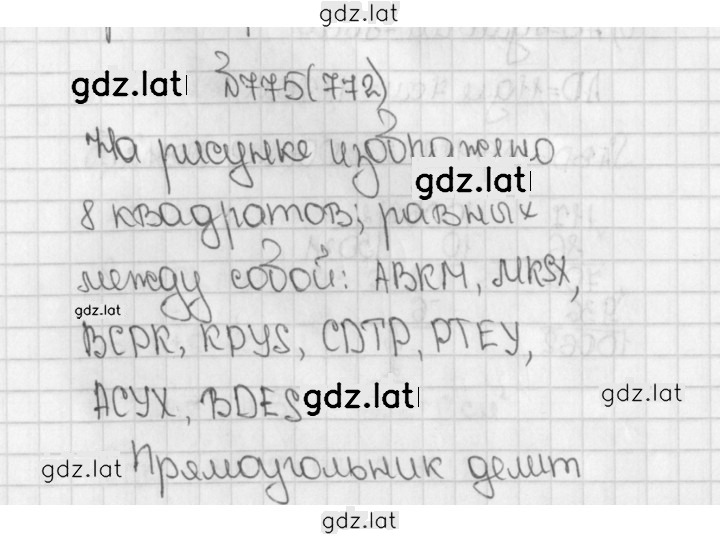 gdz.lat
gdz.lat №775(772)
На рисунке изображено
gdz.lat
8 квадратов; равных
между собой: АВКМ, МКSX,
gdz.lat
ВСРК, КРУS, СDТР, РТЕУ,
АСУХ, ВDES gdz.lat
gdz.lat
gdz.lat Прямоугольник делит
gdz.lat